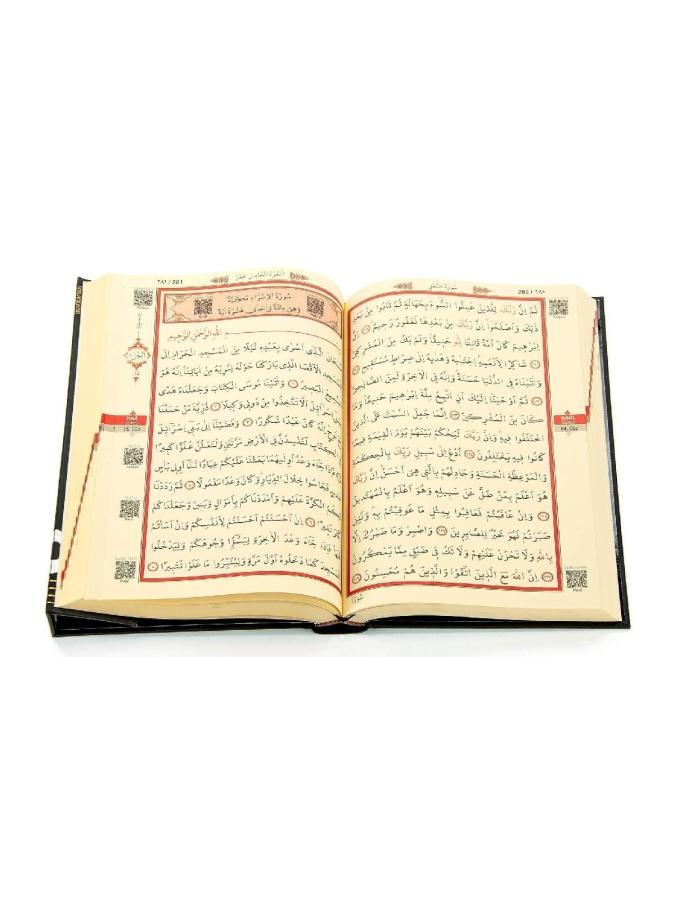 ٢٨٠ / 280
سُورَةُ النَّحْلِ
ثُمَّ اِنَّ رَبَّكَ لِلَّذ۪ينَ عَمِلُوا السُّٓوءَ بِجَهَالَةٍ ثُمَّ تَابُوا مِنْ بَعْدِ
ذٰلِكَ وَاَصْلَحُٓوا اِنَّ رَبَّكَ مِنْ بَعْدِهَا لَغَفُورٌ رَح۪يمٌ ﴿١١٩﴾ اِنَّ
اِبْرٰه۪يمَ كَانَ اُمَّةً قَانِتًا لِلّٰهِ حَن۪يفًا وَلَمْ يَكُ مِنَ الْمُشْرِك۪ينَ
﴿١٢٠﴾ شَاكِرًا لِاَنْعُمِهِ اِجْتَبٰيهُ وَهَدٰيهُ اِلٰى صِرَاطٍ مُسْتَق۪يمٍ
﴿١٢١﴾ وَاٰتَيْنَاهُ فِي الدُّنْيَا حَسَنَةً وَاِنَّهُ فِي الْاٰخِرَةِ لَمِنَ الصَّالِح۪ينَ
﴿١٢٢﴾ ثُمَّ اَوْحَيْنَٓا اِلَيْكَ اَنِ اتَّبِعْ مِلَّةَ اِبْرٰه۪يمَ حَن۪يفًا وَمَا
كَانَ مِنَ الْمُشْرِك۪ينَ ﴿١٢٣﴾ اِنَّمَا جُعِلَ السَّبْتُ عَلَى الَّذ۪ينَ
اخْتَلَفُوا ف۪يهِ وَاِنَّ رَبَّكَ لَيَحْكُمُ بَيْنَهُمْ يَوْمَ الْقِيٰمَةِ ف۪يمَا
كَانُوا ف۪يهِ يَخْتَلِفُونَ ﴿١٢٤﴾ اُدْعُ اِلٰى سَب۪يلِ رَبِّكَ بِالْحِكْمَةِ
وَالْمَوْعِظَةِ الْحَسَنَةِ وَجَادِلْهُمْ بِالَّت۪ي هِيَ اَحْسَنُ اِنَّ رَبَّكَ
هُوَ اَعْلَمُ بِمَنْ ضَلَّ عَنْ سَب۪يلِه۪ وَهُوَ اَعْلَمُ بِالْمُهْتَد۪ينَ
﴿١٢٥﴾ وَاِنْ عَاقَبْتُمْ فَعَاقِبُوا بِمِثْلِ مَا عُوقِبْتُمْ بِه۪ وَلَئِنْ
صَبَرْتُمْ لَهُوَ خَيْرٌ لِلصَّابِر۪ينَ ﴿١٢٦﴾ وَاصْبِرْ وَمَا صَبْرُكَ اِلَّا
بِاللّٰهِ وَلَا تَحْزَنْ عَلَيْهِمْ وَلَا تَكُ ف۪ي ضَيْقٍ مِمَّا يَمْكُرُونَ
﴿١٢٧﴾ اِنَّ اللّٰهَ مَعَ الَّذ۪ينَ اتَّقَوْا وَالَّذ۪ينَ هُمْ مُحْسِنُونَ ﴿١٢٨﴾
سُورَةُ
NAHL
Meal
٢٨١ / 281
اَلْجُزْءُ الْخَامِسَ عَشَرَ
سُورَةُ الْاِسْرَاءِ مَكِّيَّةٌ
وَهِيَ مِائَةٌ وَاِحْدٰى عَشْرَةَ اٰيَةً
اللّٰهِ الرَّحْمٰنِ الرَّح۪يمِ
الَّذ۪ٓي اَسْرٰى بِعَبْدِه۪ لَيْلًا مِنَ الْمَسْجِدِ الْحَرَامِ اِلَى
الْاَقْصَا الَّذ۪ي بَارَكْنَا حَوْلَهُ لِنُرِيَهُ مِنْ اٰيَاتِنَا اِنَّهُ هُوَ
الْبَص۪يرُ ﴿١﴾ وَاٰتَيْنَا مُوسَى الْكِتَابَ وَجَعَلْنَاهُ هُدًى
اَلَّا تَتَّخِذُوا مِنْ دُون۪ي وَك۪يلًا ﴿٢﴾ ذُرِّيَّةَ مَنْ حَمَلْنَا
اِنَّهُ كَانَ عَبْدًا شَكُورًا ﴿٣﴾ وَقَضَيْنَٓا اِلٰى بَن۪ٓي اِسْرَٓائ۪لَ
الْكِتَابِ لَتُفْسِدُنَّ فِي الْاَرْضِ مَرَّتَيْنِ وَلَتَعْلُنَّ عُلُوًّا كَب۪يرًا
جَٓاءَ وَعْدُ اُو۫لٰيهُمَا بَعَثْنَا عَلَيْكُمْ عِبَادًا لَنَٓا اُو۬ل۪ي بَأْسٍ
فَجَاسُوا خِلَالَ الدِّيَارِ وَكَانَ وَعْدًا مَفْعُولًا ﴿٥﴾ ثُمَّ رَدَدْنَا
الْكَرَّةَ عَلَيْهِمْ وَاَمْدَدْنَاكُمْ بِاَمْوَالٍ وَبَن۪ينَ وَجَعَلْنَاكُمْ
﴿٦﴾ اِنْ اَحْسَنْتُمْ اَحْسَنْتُمْ لِاَنْفُسِكُمْ وَاِنْ اَسَأْتُمْ
فَاِذَا جَٓاءَ وَعْدُ الْاٰخِرَةِ لِيَسُٓؤُ۫ا وُجُوهَكُمْ وَلِيَدْخُلُوا
كَمَا دَخَلُوهُ اَوَّلَ مَرَّةٍ وَلِيُتَبِّرُوا مَا عَلَوْا تَتْب۪يرًا ﴿٧﴾
Meal